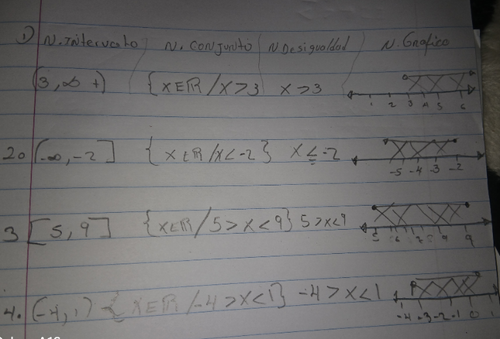 1) N. Intervalo N. Conjunto N Desigualdad N. Grafico
(3, ∞ +) {X∈ℝ / X > 3 X > 3 1 2 3 4 5 6
20 (-∞, -2] {X∈ℝ / X < -2} X ≤ -2 -5 -4 -3 -2
3 [5, 9] {X∈ℝ / 5 > X < 9} 5 > X < 9 5 6 7 8 9
4. (-4, 1) {X∈ℝ / -4 > X < 1} -4 > X < 1 -4 -3 -2 -1 0